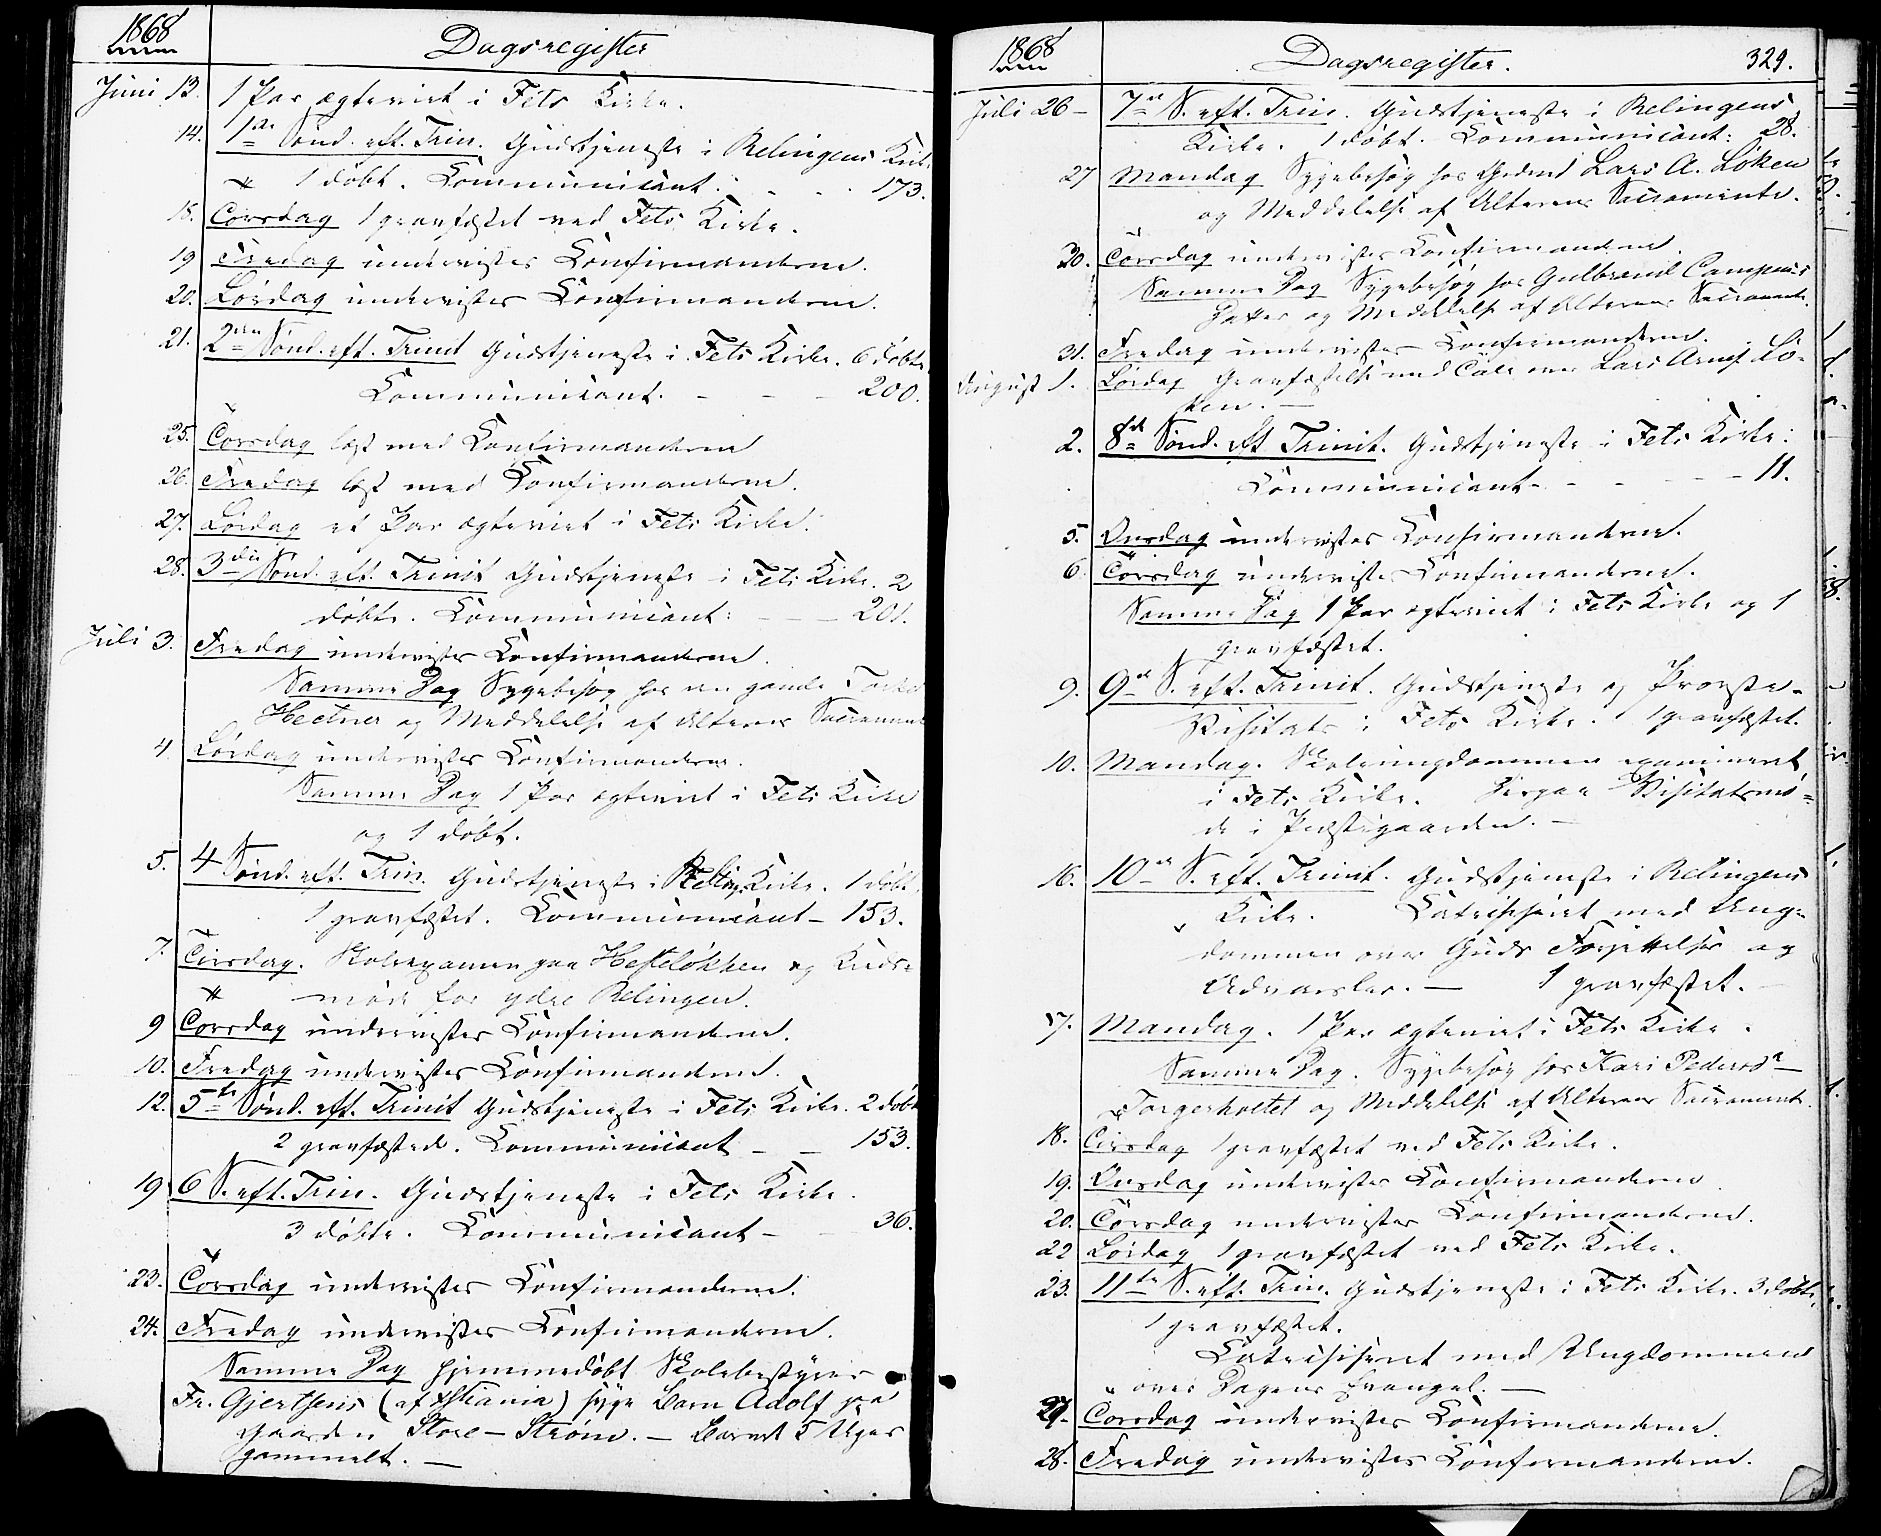 1868
Dagsregister
Juni 13. 1 Par ægteviet i Fets Kirke.
14. 1ste Sønd. eft. Trin. Gudstjeneste i Relingens Kirke
1 døbt. Communicant: - - - 173.
18. Torsdag 1 gravfæstet ved Fets Kirke.
19 Fredag undervistes Confirmanderne.
20. Lørdag undervistes Confirmanderne.
21. 2den Sønd. eft. Trinit Gudstjeneste i Fets Kirke. 6 døbte.
Communicant. - - - 200.
25. Torsdag læst med Confirmanderne
26. Fredag læst med Confirmanderne.
27. Lørdag et Par ægteviet i Fets Kirke.
28. 3die Sønd. eft. Trinit Gudstjeneste i Fets Kirke. 2
døbte. Communicant: - - - 201.
Juli 3. Fredag undervistes Confirmanderne.
Samme Dag Sygebesøg hos
Hectner og Meddelelse af Alterens Sacrament
4 Lørdag undervistes Confirmanderne.
Samme Dag 1 Par ægteviet i Fets Kirke
og 1 døbt.
5. 4 Sønd. eft. Trin. Gudstjeneste i Reling. Kirke. 1 døbt.
1 gravfæstet. Communicant - 153.
7. Tirsdag. Skoleexamen paa Hesteløkken og Kreds-
møde for ydre Relingen.
9 Torsdag undervistes Confirmanderne.
10. Fredag undervistes Confirmanderne.
12. 5te Sønd. eft. Trinit Gudstjeneste i Fets Kirke. 2 døbt
2 gravfæstede. Communicant - - 153.
19 6 S. eft. Trin. Gudstjeneste i Fets Kirke.
3 døbte. Communicant - - 36.
23. Torsdag undervistes Confirmanderne.
24. Fredag undervistes Confirmanderne.
Samme Dag hjemmedøbt Skolebestyrer
Fr. Gjertsens (af Xstiania) syge Barn Adolf paa
Gaarden Store-Strøm. - Barnet 5 Uger
gammelt. -
1868
Dagsregister.
329.
Juli 26 - 7de S. eft. Trin. Gudstjeneste i Relingens
Kirke. 1 døbt. Communicant: 28.
27 Mandag Sygebesøg hos Lars A. Løken
og Meddelelse af Alterens Sacramente.
30. Torsdag undervistes Confirmanderne.
Samme Dag Sygebesøg hos Gulbrand Campens
og Meddelelse af Alterens Sacramente.
31. Fredag undervistes Confirmanderne.
August 1. Lørdag Gravfæstelse med Tale over Lars Arnes. Lø-
ken. -
2. 8de Sønd. eft Trinit. Gudstjeneste i Fets Kirke:
Communicant - - - - 11.
5. Onsdag undervistes Confirmanderne.
6. Torsdag undervistes Confirmanderne.
Samme Dag 1 Par ægteviet i Fets Kirke og 1
gravfæstet.
9. 9de S. eft. Trinit. Gudstjeneste og Provste-
Visitats i Fets Kirke. 1 gravfæstet.
10. Mandag. Skoleungdommen examineret
i Fets Kirke. Derpaa Visitatsmø-
de i Præstegaarden. -
16. 10de S. eft. Trinit. Gudstjeneste i Relingens
Kirke. Catechiseret med Ung-
dommen over Guds Forjættelser og
Advarsler. - 1 gravfæstet. -
17. Mandag. 1 Par ægteviet i Fets Kirke.
Samme Dag. Sygebesøg hos Kari Pedersdr
Torgerholtet og Meddelelse af Alterens Sacrament.
18. Tirsdag 1 gravfæstet ved Fets Kirke.
19. Onsdag undervistes Confirmanderne
20. Torsdag undervistes Confirmanderne.
22 Lørdag 1 gravfæstet ved Fets Kirke.
23. 11te S. eft. Trin. Gudstjeneste i Fets Kirke. 3 døbte,
1 gravfæstet.
Catechiseret med Ungdommen
over Dagens Evangel. -
27. Torsdag undervistes Confirmanderne.
28. Fredag undervistes Confirmanderne.